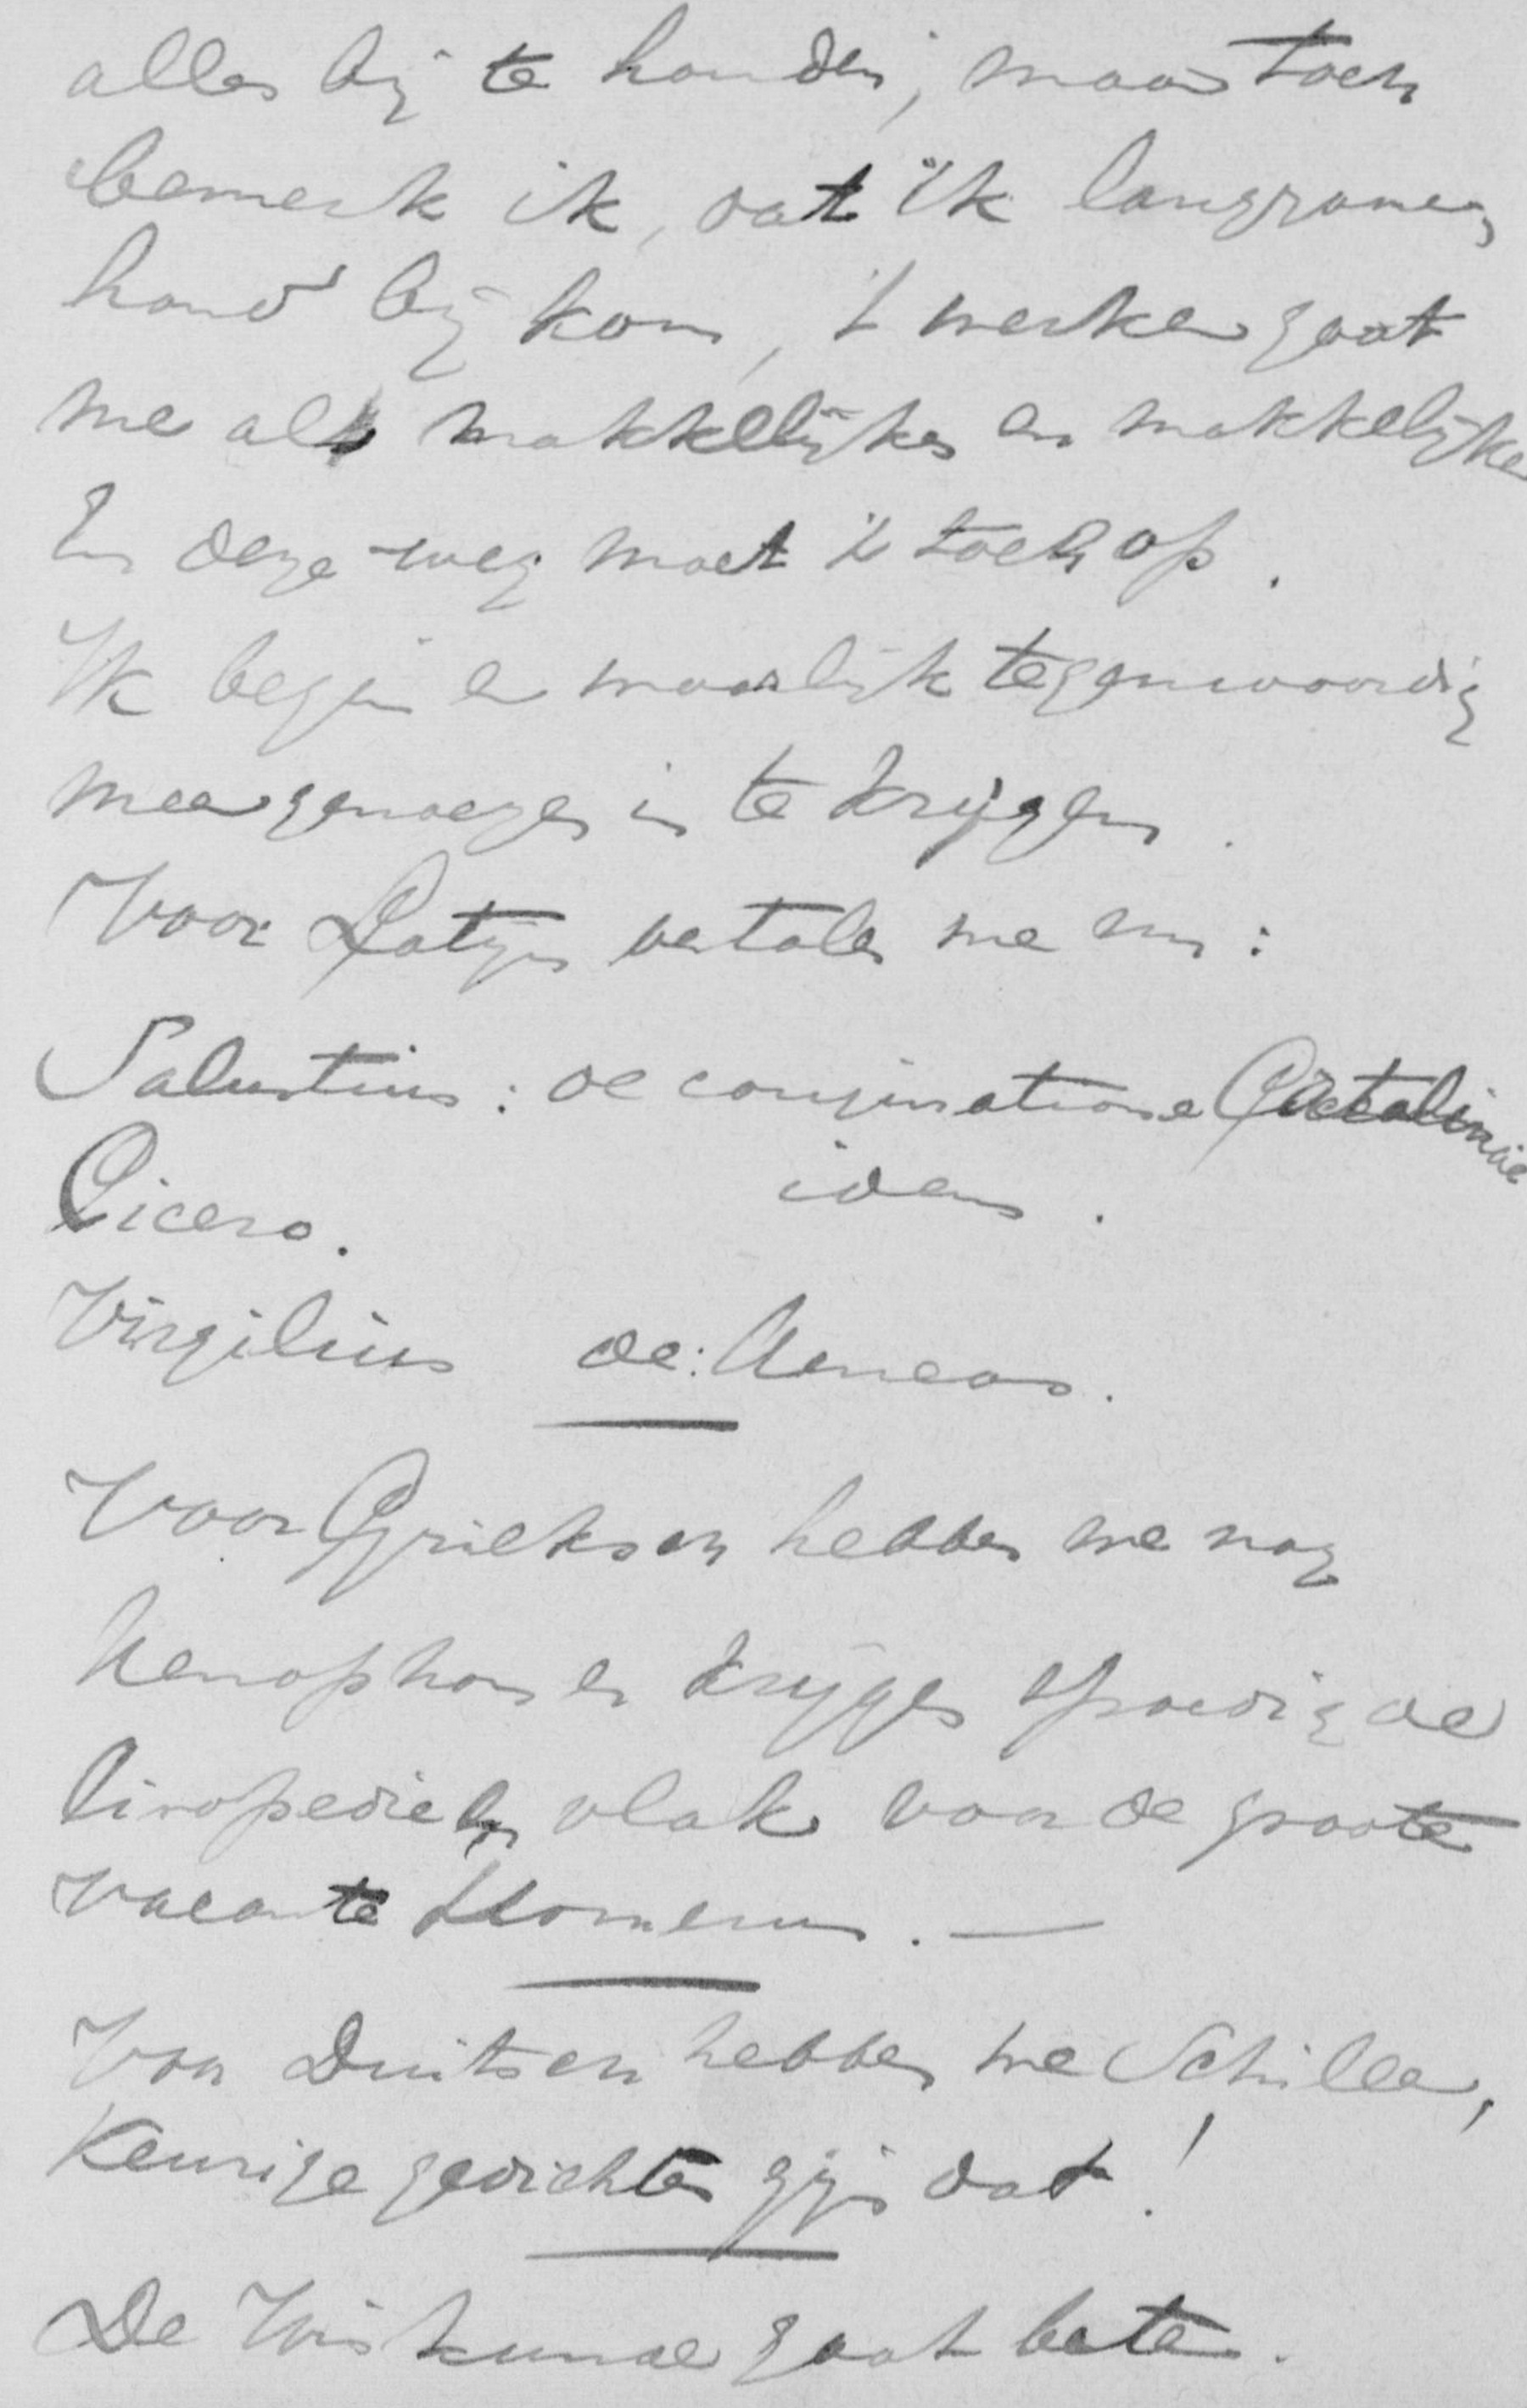 alles bij te houden, maar toch
bemerk ik, dat ik langzamer,
hand bij kom, 't werken gaat
me als makkelijker en makkelijker
En deze weg moet 't toch op.
Ik begin er waarlijk tegenwoordig
meer genoegen in te krijgen.
Voor Latijn vertalen we nu:
Salustius: de conjuratione Catalinae
Cicero. idem.
Virgilius de: Aeneas.
Voor Grieksch hebben we nog
Xenophon en krijgen spoedig de
Ciropedie en vlak voor de groote
vacantie Homerus. —
Voor Duitsch hebben we Schiller,
Keurige gedichten zijn dat!
De Wiskunde gaat beter.